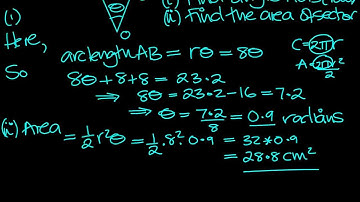 (i)
(ii) Find the area of sector
θ
O
Here,
C = 2πr
A = 2πr²/2
arc length AB = rθ = 8θ
So
8θ + 8 + 8 = 23.2
⇒ 8θ = 23.2 - 16 = 7.2
⇒ θ = 7.2/8 = 0.9 radians
(ii) Area = 1/2 r²θ = 1/2 . 8² . 0.9 = 32 * 0.9
= 28.8 cm²